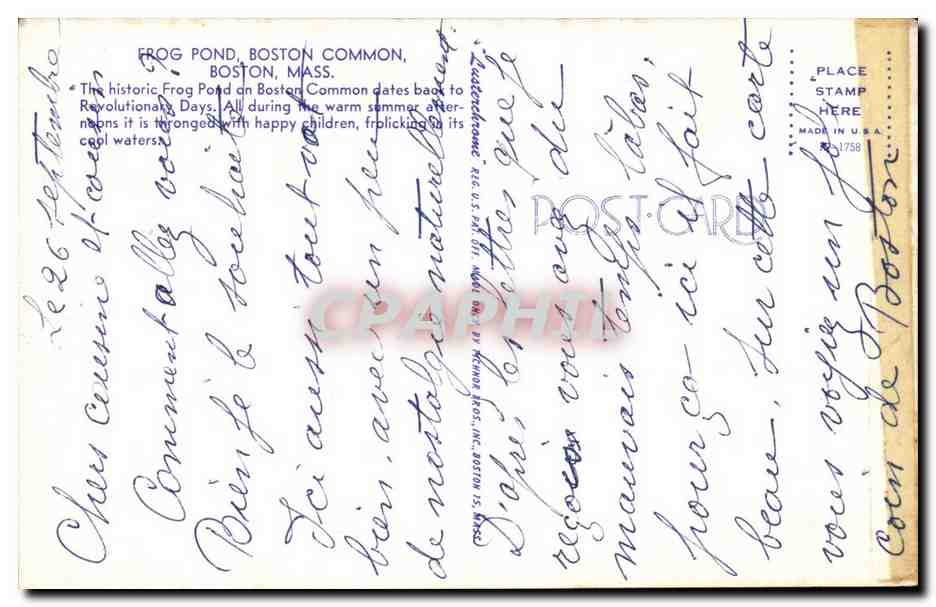 FROG POND, BOSTON COMMON,
BOSTON, MASS.
The historic Frog Pond on Boston Common dates back to
Revolutionary Days. All during the warm summer after-
noons it is thronged with happy children, frolicking in its
cool waters.
"Lusterchrome" REG. U.S. PAT. OFF. MADE ONLY BY TICHNOR BROS., INC., BOSTON 15, MASS.
POST CARD
PLACE
STAMP
HERE
MADE IN U.S.A.
1758
Le 26 septembre
Chers cousine et cousin
Comment allez vous?
Bien je le souhaite
Ici aussi tout va
bien, avec un peu
de nostalgie naturellement.
D'après les lettres que je
reçois vous avez du
mauvais temps là bas,
pour ça ici il fait
beau. Sur cette carte
vous voyez un joli
coin de Boston
CPAPHIL